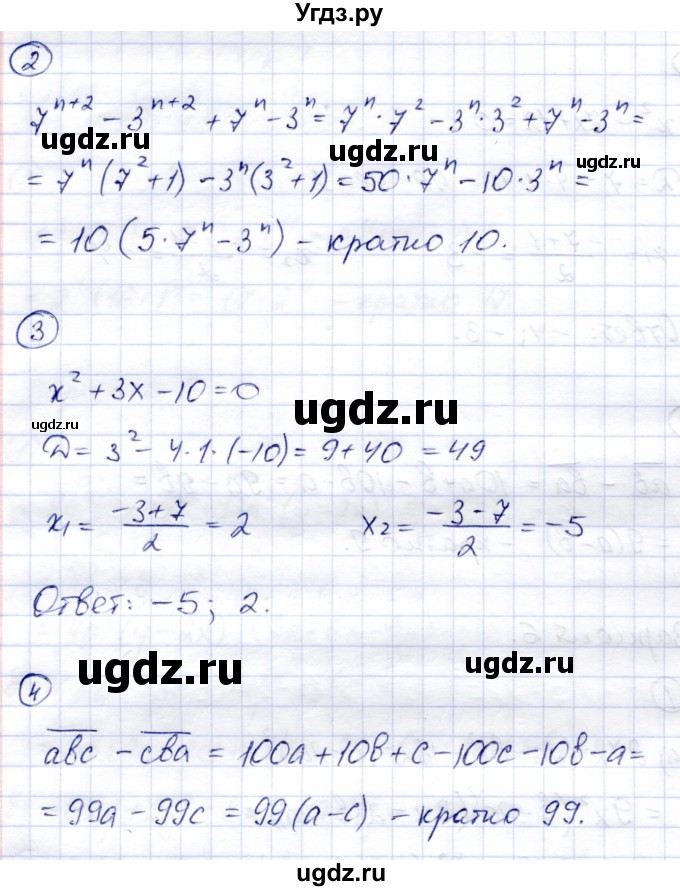 Угдз.ру
2
7^{n+2} - 3^{n+2} + 7^n - 3^n = 7^n · 7^2 - 3^n · 3^2 + 7^n - 3^n =
ugdz.ru ugdz.ru ugdz.ru
= 7^n (7^2 + 1) - 3^n (3^2 + 1) = 50 · 7^n - 10 · 3^n =
= 10 (5 · 7^n - 3^n) - кратно 10.
3
x^2 + 3x - 10 = 0
ugdz.ru ugdz.ru
D = 3^2 - 4 · 1 · (-10) = 9 + 40 = 49
x_1 = (-3+7)/2 = 2 x_2 = (-3-7)/2 = -5
Ответ: -5; 2.
ugdz.ru ugdz.ru
4
abc - cba = 100a + 10b + c - 100c - 10b - a =
= 99a - 99c = 99 (a - c) - кратно 99.
ugdz.ru ugdz.ru